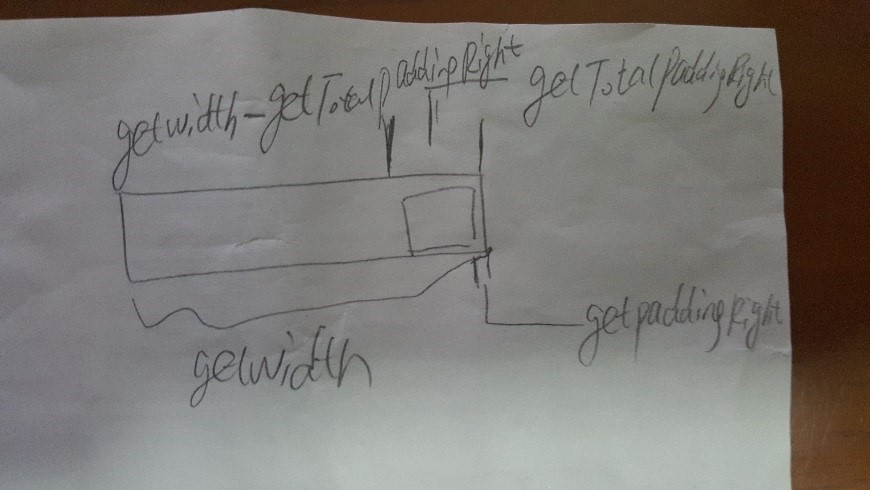 getwidth-getTotalpaddingRight
getTotalPaddigRight
getpaddingRight
getwidth